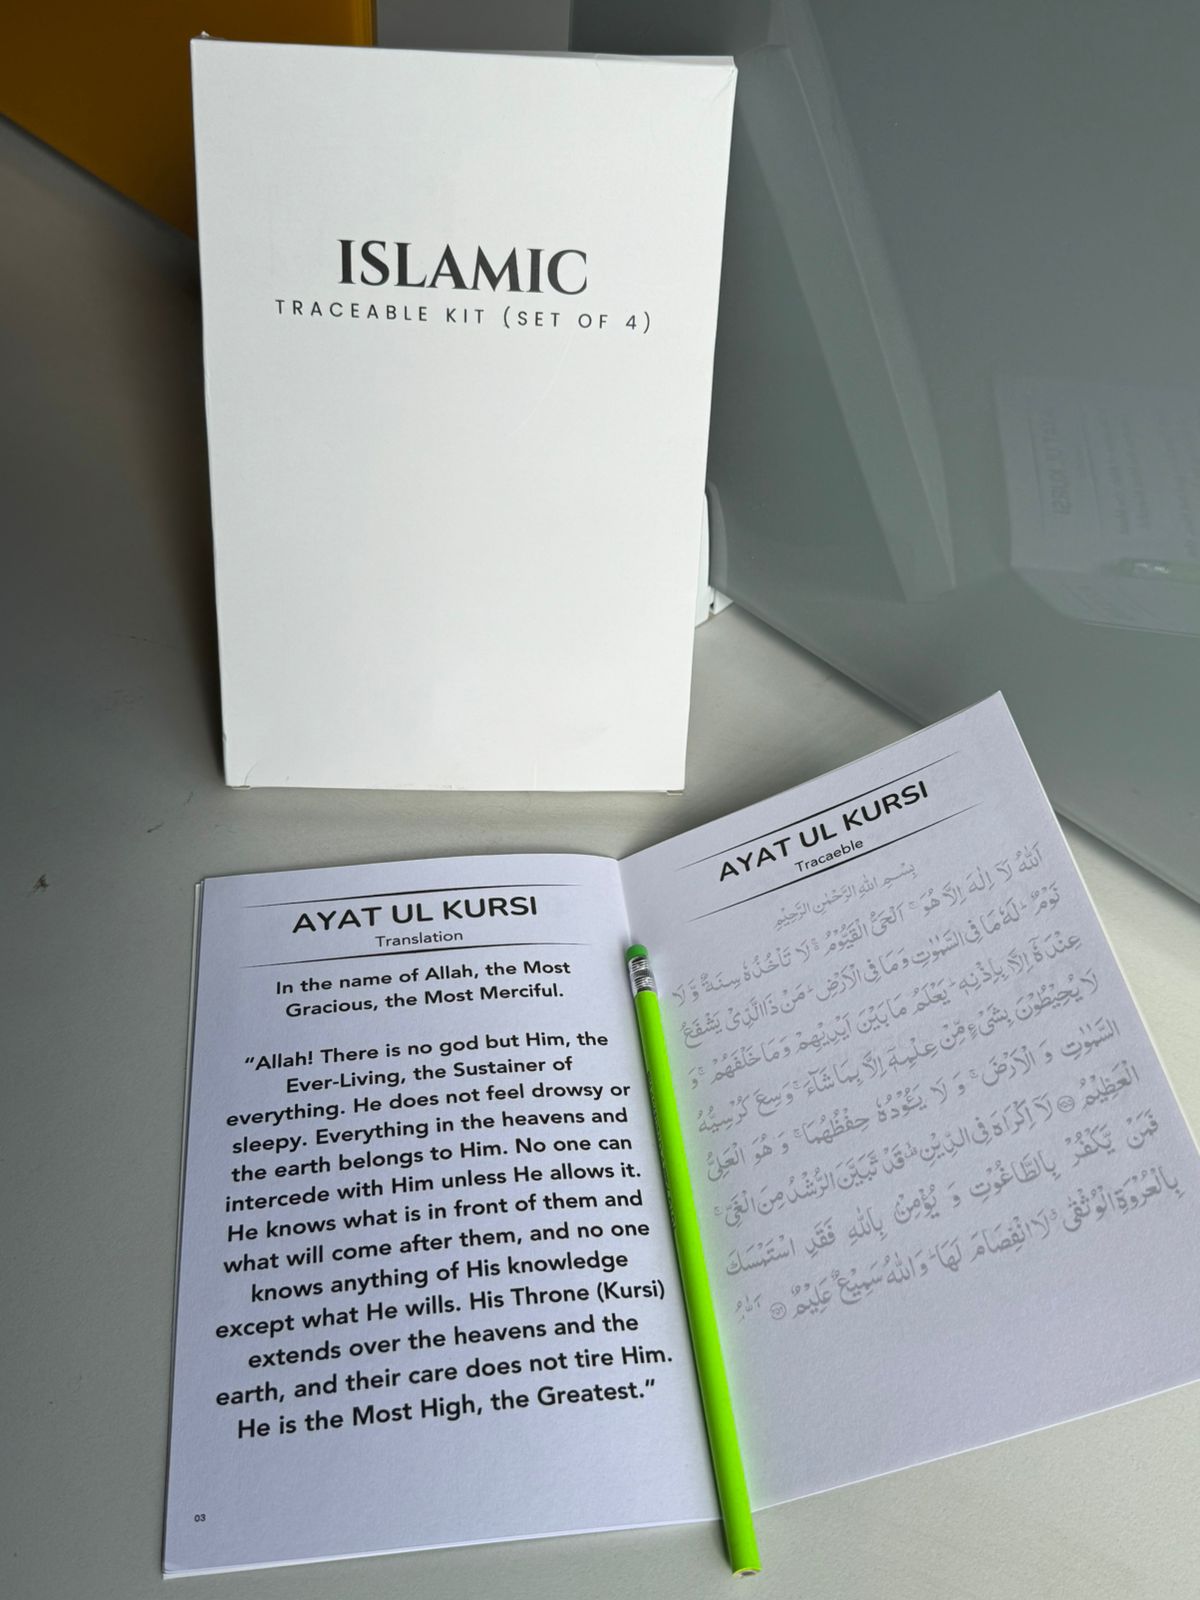 ISLAMIC
TRACEABLE KIT (SET OF 4)
AYAT UL KURSI
Translation
In the name of Allah, the Most
Gracious, the Most Merciful.
“Allah! There is no god but Him, the
Ever-Living, the Sustainer of
everything. He does not feel drowsy or
sleepy. Everything in the heavens and
the earth belongs to Him. No one can
intercede with Him unless He allows it.
He knows what is in front of them and
what will come after them, and no one
knows anything of His knowledge
except what He wills. His Throne (Kursi)
extends over the heavens and the
earth, and their care does not tire Him.
He is the Most High, the Greatest.”
03
AYAT UL KURSI
Tracaeble
بِسْمِ اللهِ الرَّحْمٰنِ الرَّحِيْمِ
اَللهُ لَآ اِلٰهَ اِلَّا هُوَ ۚ اَلْحَيُّ الْقَيُّوْمُ ۚ لَا تَأْخُذُهٗ سِنَةٌ وَّلَا
نَوْمٌ ؕ لَهٗ مَا فِى السَّمٰوٰتِ وَمَا فِى الْاَرْضِ ؕ مَنْ ذَا الَّذِىْ يَشْفَعُ
عِنْدَهٗٓ اِلَّا بِاِذْنِهٖ ؕ يَعْلَمُ مَا بَيْنَ اَيْدِيْهِمْ وَمَا خَلْفَهُمْ ۚ وَ
لَا يُحِيْطُوْنَ بِشَىْءٍ مِّنْ عِلْمِهٖٓ اِلَّا بِمَا شَآءَ ۚ وَسِعَ كُرْسِيُّهُ
السَّمٰوٰتِ وَ الْاَرْضَ ۚ وَ لَا يَـُٔوْدُهٗ حِفْظُهُمَا ۚ وَ هُوَ الْعَلِىُّ
الْعَظِيْمُ لَآ اِكْرَاهَ فِى الدِّيْنِ ۙ قَدْ تَّبَيَّنَ الرُّشْدُ مِنَ الْغَىِّ ۚ
فَمَنْ يَّكْفُرْ بِالطَّاغُوْتِ وَ يُؤْمِنْۢ بِاللهِ فَقَدِ اسْتَمْسَكَ
بِالْعُرْوَةِ الْوُثْقٰى ۗ لَا انْفِصَامَ لَهَا ؕ وَاللهُ سَمِيْعٌ عَلِيْمٌ